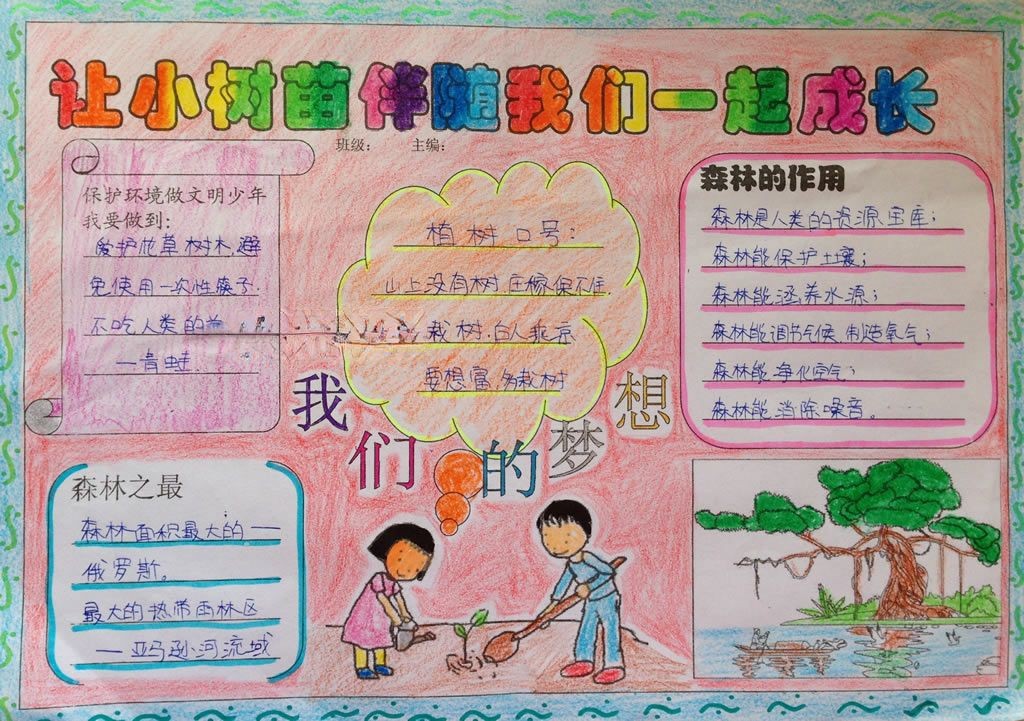 让小树苗伴随我们一起成长
班级: 主编:
保护环境做文明少年
我要做到:
爱护花草树木.避
免使用一次性筷子.
不吃人类的
—青蛙.
植树口号:
山上没有树.庄稼保不住
栽树.百人乘凉
要想富.多栽树
森林的作用
森林是人类的资源宝库;
森林能保护土壤;
森林能涵养水源;
森林能调节气候.制造氧气;
森林能净化空气;
森林能消除噪音。
我们的梦想
森林之最
森林面积最大的—
俄罗斯。
最大的热带雨林区
—亚马孙河流域